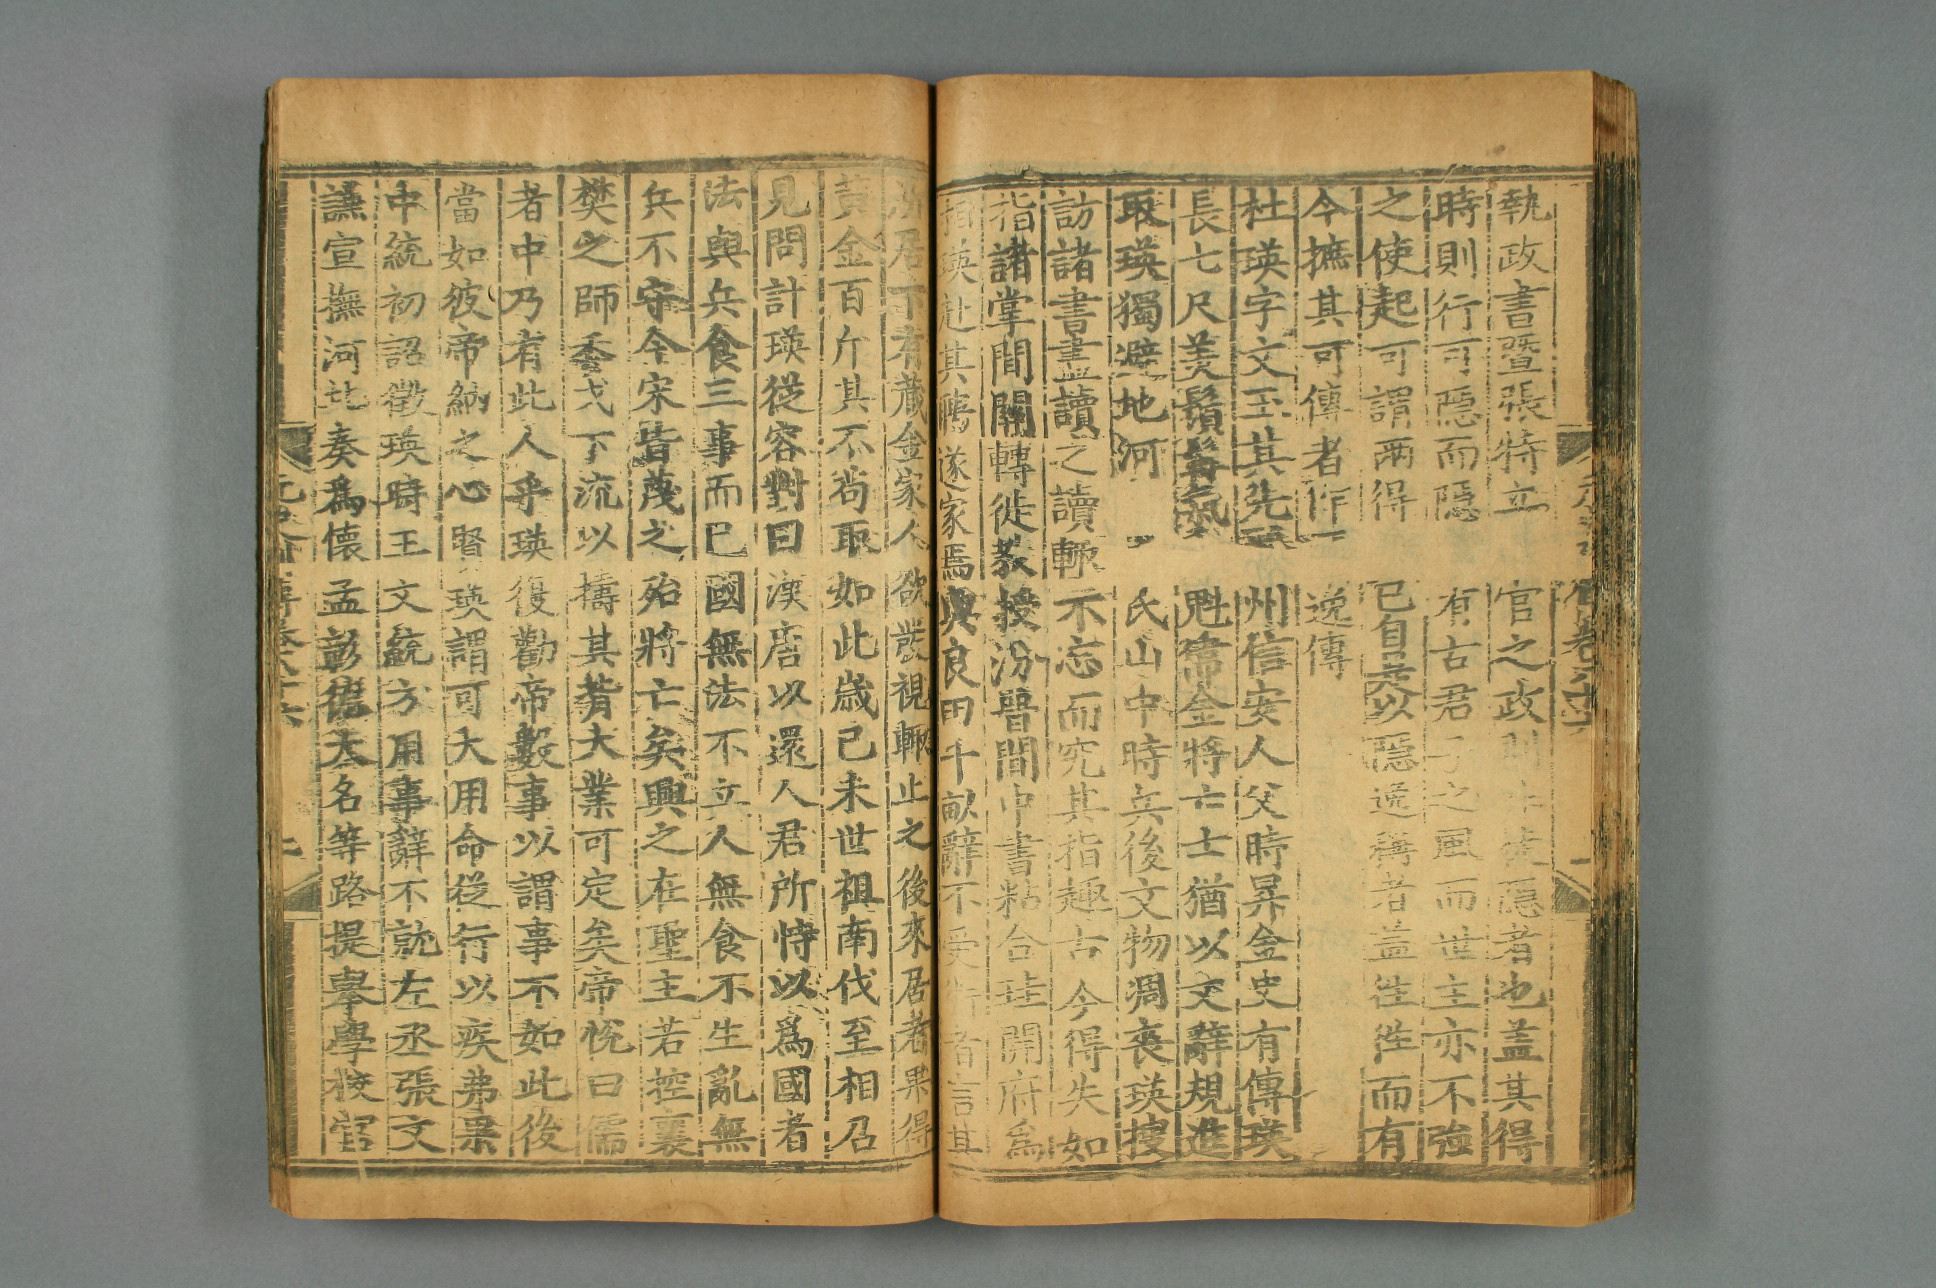 執政書暨張特立 官之政 隱者也蓋其得
時則行可隱而隱 有古君子之風而世主亦不強
之使起可謂兩得 已自是以隱逸稱者蓋徃徃而有
今摭其可傳者作 逸傳
杜瑛字文玉其先 州信安人父時昇金史有傳瑛
長七尺美鬚髯氣 魁偉金將亡士猶以文辭規進
取瑛獨避地河 氏山中時兵後文物凋喪瑛搜
訪諸書盡讀之讀輒不忘而究其指趣古今得失如
指諸掌間關轉徙教授汾晉間中書粘合珪開府為
相瑛赴其聘遂家焉與良田千畝辭不受術者言其
所居下有藏金家人欲發視輒止之後來居者果得
黃金百斤其不茍取如此歲己未世祖南伐至相召
見問計瑛從容對曰漢唐以還人君所恃以爲國者
法與兵食三事而已國無法不立人無食不生亂無
兵不守今宋皆蔑之殆將亡矣興之在聖主若控襄
樊之師委戈下流以擣其背大業可定矣帝悅曰儒
者中乃有此人乎瑛復勸帝數事以謂事不如此後
當如彼帝納之心賢瑛謂可大用命從行以疾弗果
中統初詔徵瑛時王文統方用事辭不就左丞張文
謙宣撫河北奏爲懷孟彰德大名等路提舉學校官